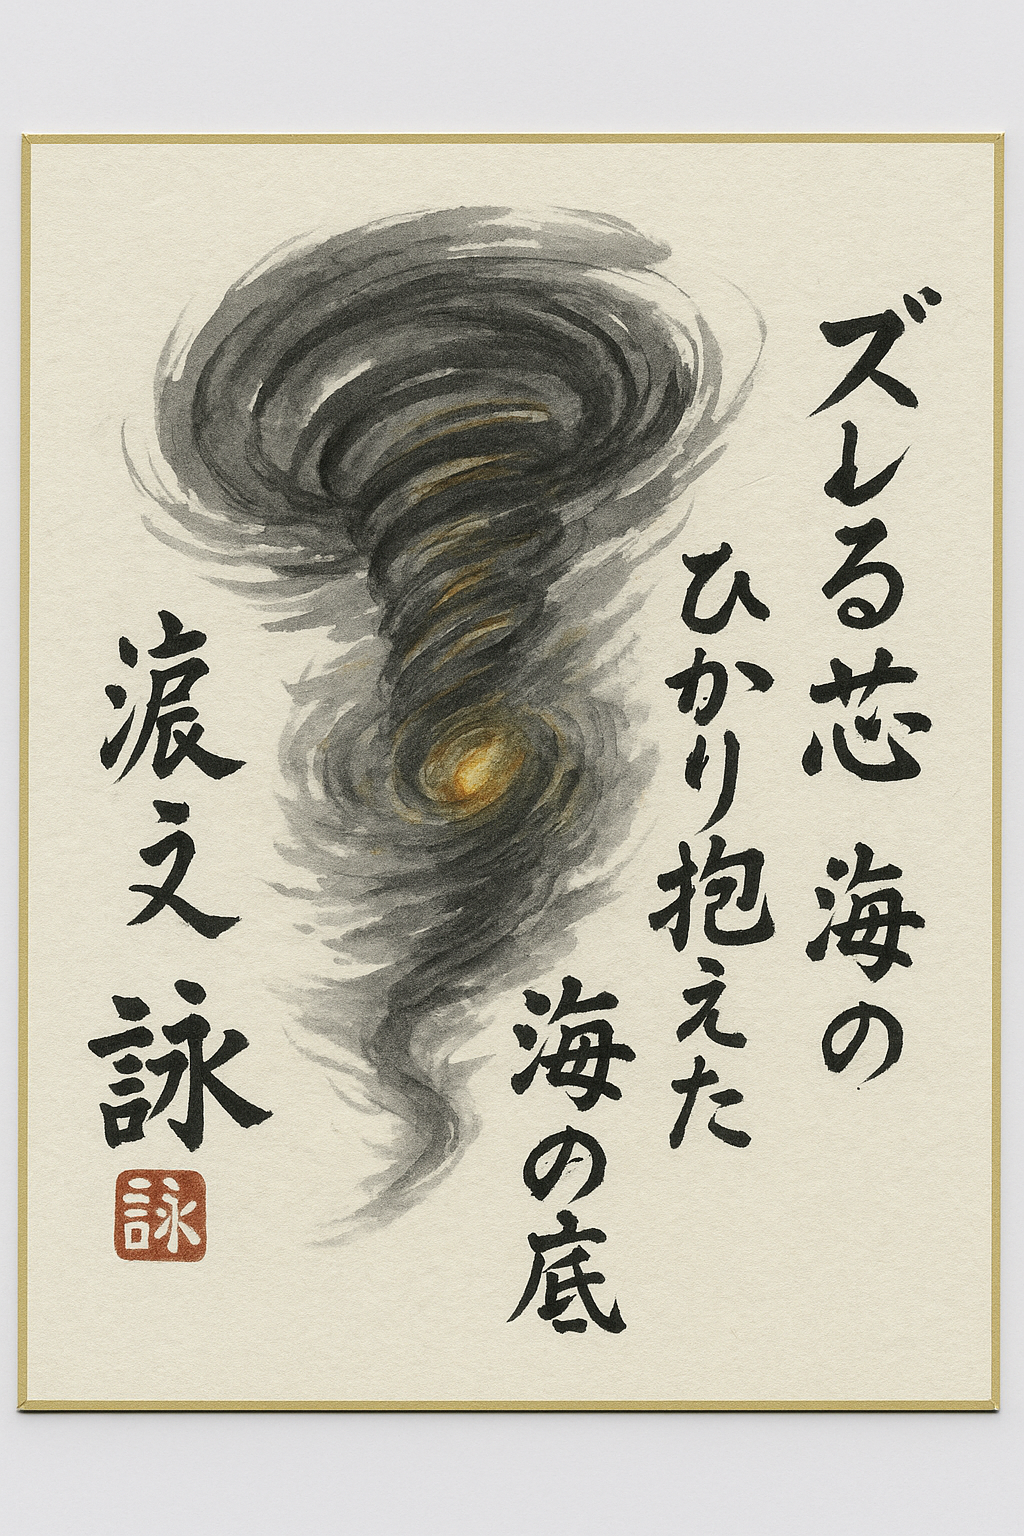 ズレる芯 海の
ひかり抱えた
海の底
文 詠
詠